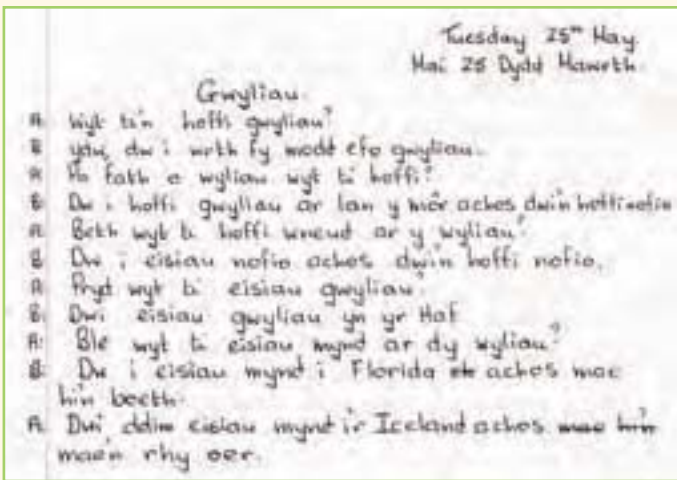 Tuesday 25th May
Mai 25 Dydd Mawrth
Gwyliau.
A: Wyt ti'n hoffi gwyliau?
B: Ydw, dw i wrth fy modd efo gwyliau.
A: Pa fath o wyliau wyt ti hoffi?
B: Dw i hoffi gwyliau ar lan y môr achos dwi'n hoffi nofio
A: Beth wyt ti hoffi wneud ar y wyliau?
B: Dw i eisiau nofio achos dwi'n hoffi nofio.
A: Pryd wyt ti eisiau gwyliau?
B: Dwi eisiau gwyliau yn yr Haf
A: Ble wyt ti eisiau mynd ar dy wyliau?
B: Dw i eisiau mynd i Florida achos mae
hi'n boeth.
A: Dwi ddim eisiau mynd i'r Iceland achos mae hi'n
mae'n rhy oer.